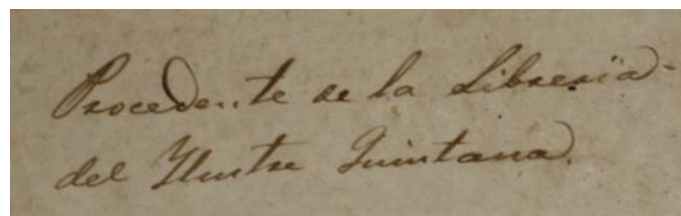 Procedente de la Libreria
del Ilustre Quintana.